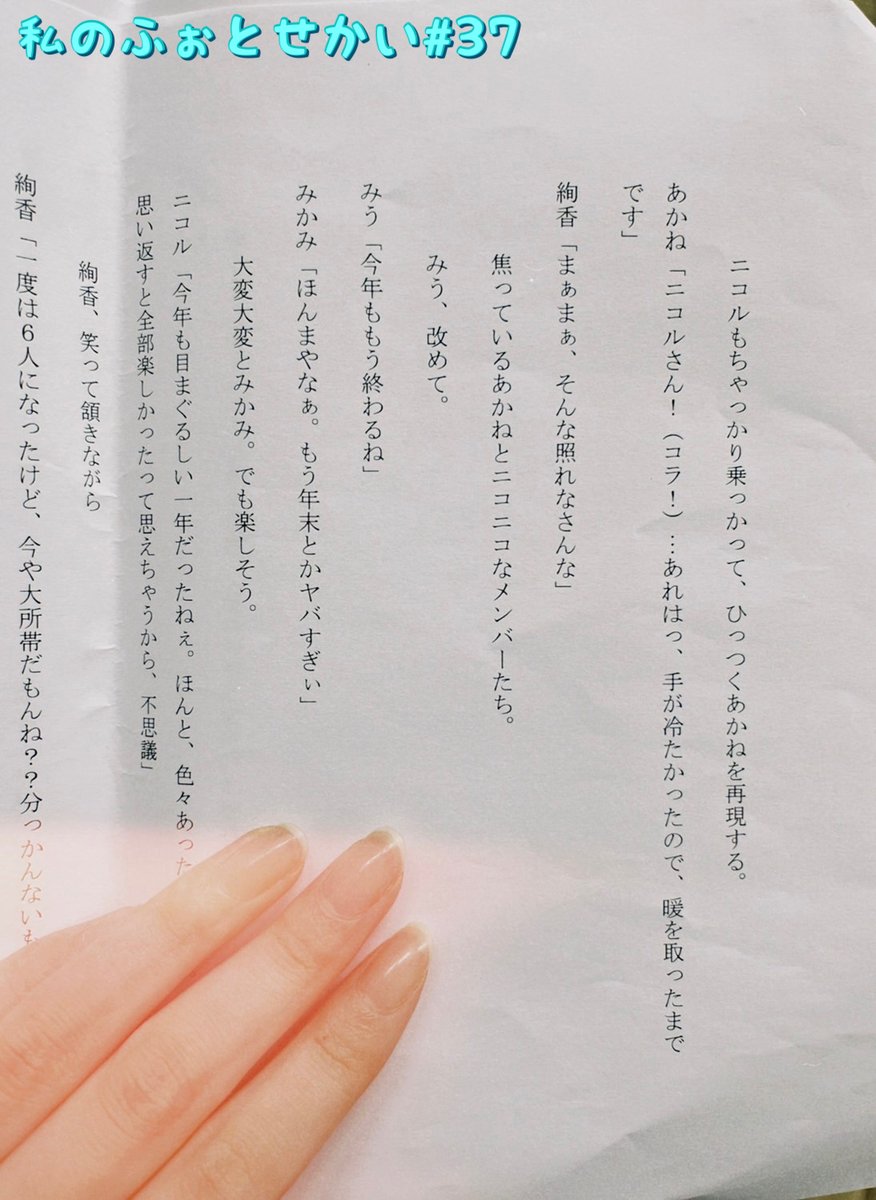 私のふぉとせかい#37
ニコルもちゃっかり乗っかって、ひっつくあかねを再現する。
あかね「ニコルさん！（コラ！）…あれはっ、手が冷たかったので、暖を取ったまで
です」
絢香「まぁまぁ、そんな照れなさんな」
焦っているあかねとニコニコなメンバーたち。
みう、改めて。
みう「今年ももう終わるね」
みかみ「ほんまやなぁ。もう年末とかヤバすぎぃ」
大変大変とみかみ。でも楽しそう。
ニコル「今年も目まぐるしい一年だったねぇ。ほんと、色々あった
思い返すと全部楽しかったって思えちゃうから、不思議」
絢香、笑って頷きながら
絢香「一度は６人になったけど、今や大所帯だもんね？？分っかんないも